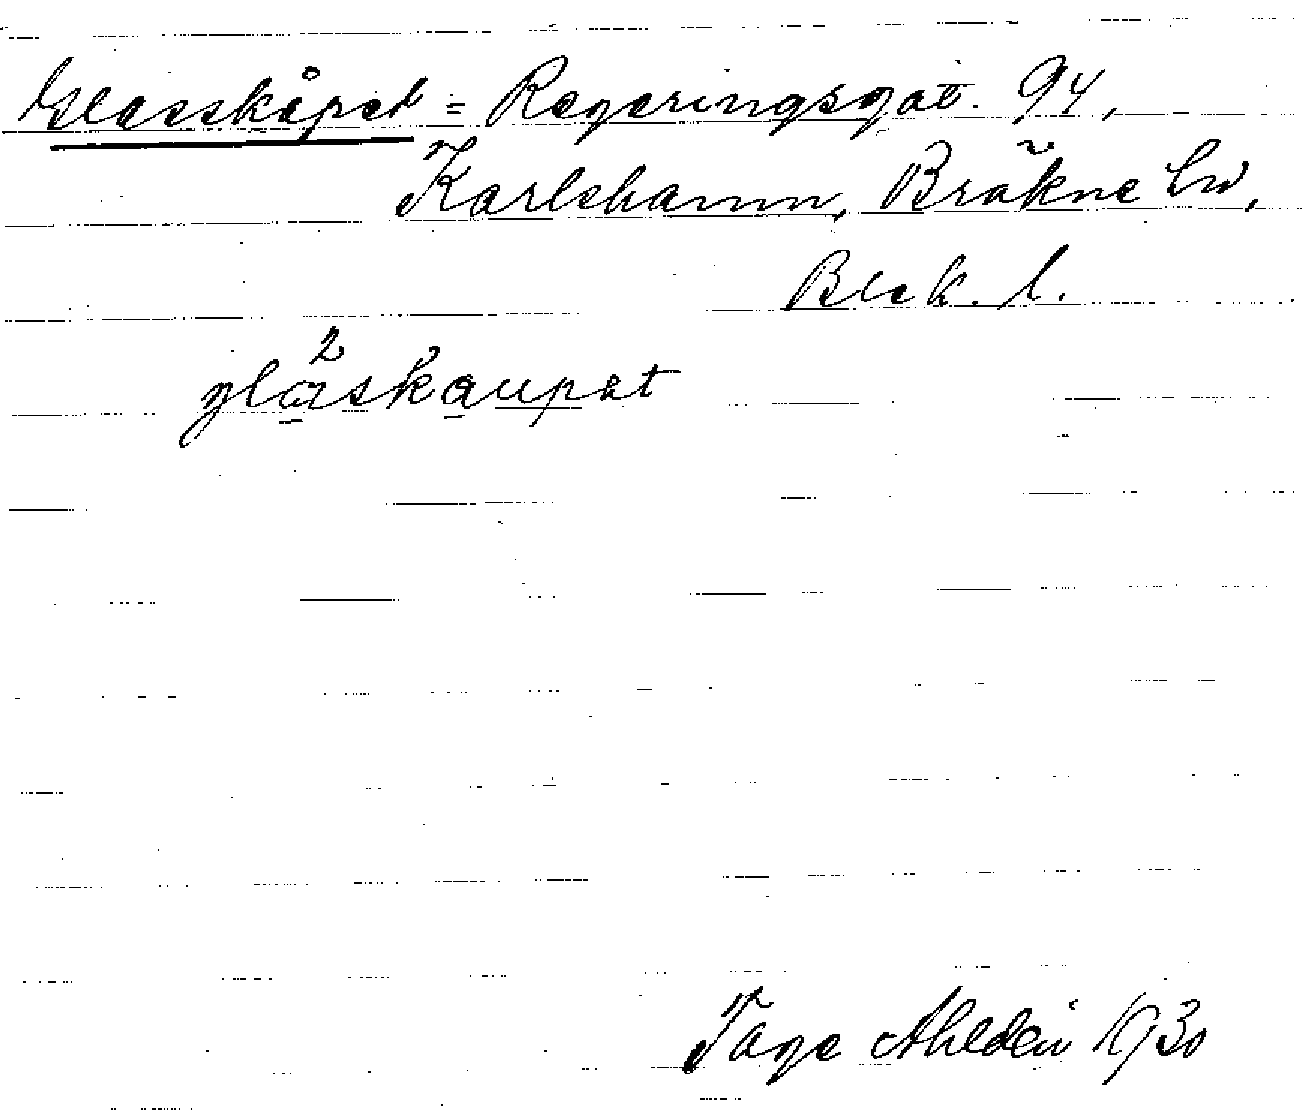 Glasskåpet = Regeringsgat. 94,
Karlshamn, Bräkne hd,
Blek. l.
glaskaupet
Tage Ahldén 1930